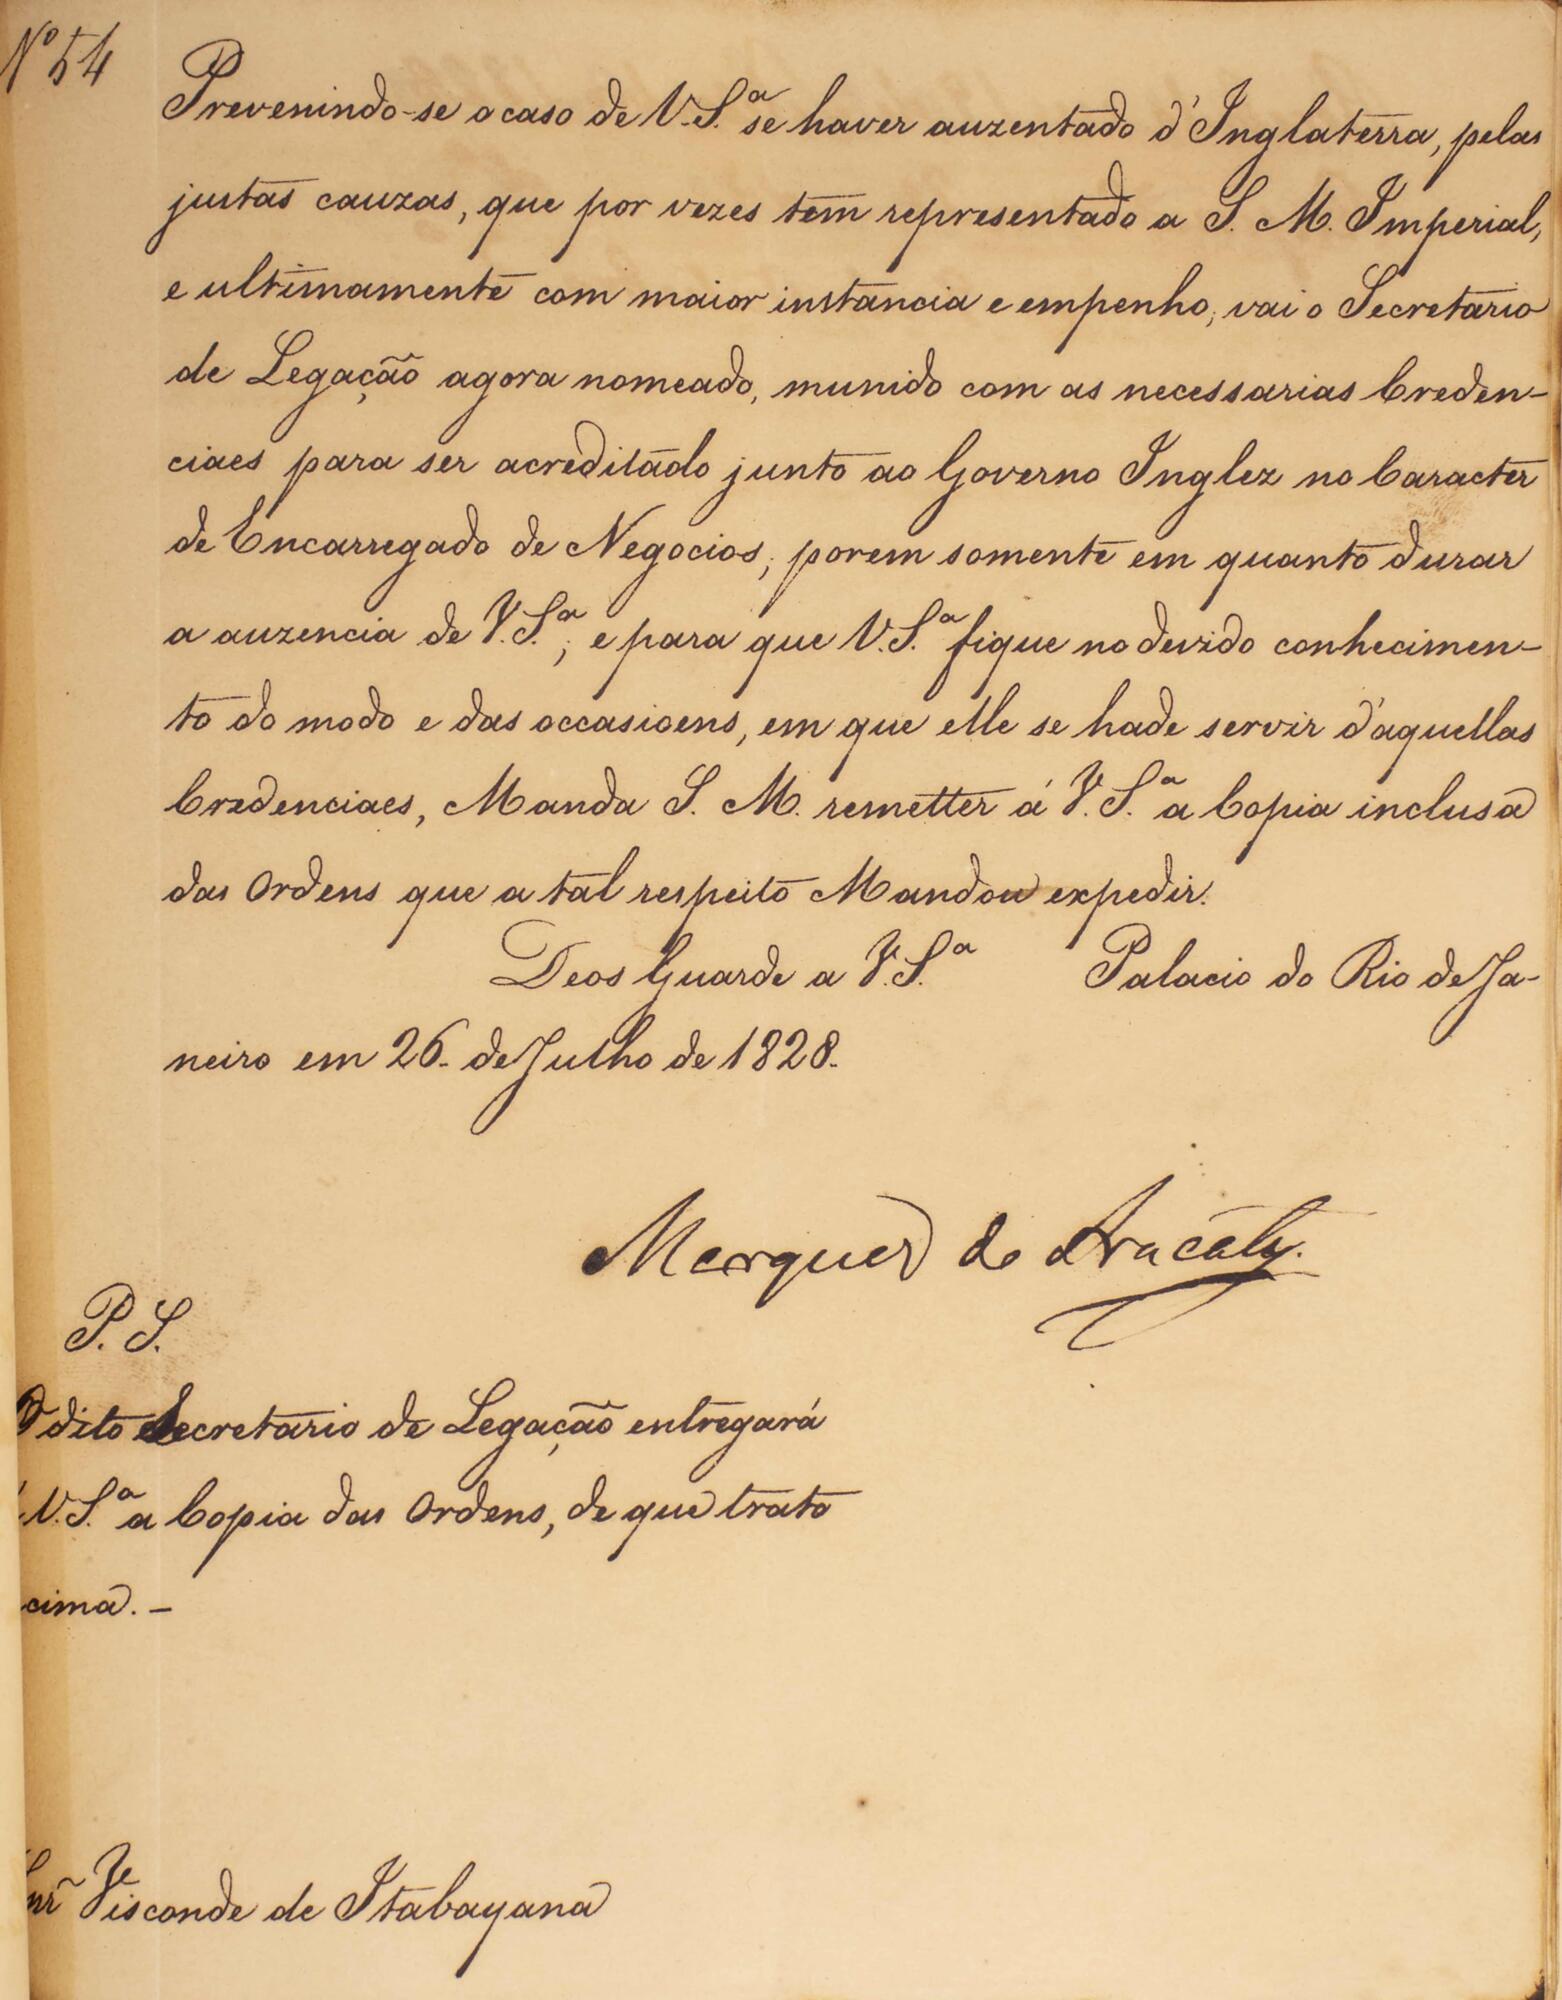 Nº 54
Prevenindo-se o caso de V.S.ª se haver auzentado d'Inglaterra, pelas
justas cauzas, que por vezes tem representado a S. M. Imperial,
e ultimamente com maior instancia e empenho, vai o Secretario
de Legação agora nomeado, munido com as necessarias Creden-
ciaes para ser acreditado junto ao Governo Inglez no Caracter
de Encarregado de Negocios; porem somente em quanto durar
a auzencia de V.S.ª; e para que V.S.ª fique no devido conhecimen-
to do modo e das occasioens, em que elle se hade servir d'aquellas
Credenciaes, Manda S. M. remetter á V.S.ª a Copia inclusa
das Ordens que a tal respeito Mandou expedir.
Deos Guarde a V.S.ª Palacio do Rio de Ja-
neiro em 26 de Julho de 1828.
Marquez do Aracaty.
P. S.
O dito Secretario de Legação entregará
V.S.ª a Copia das Ordens, de que trato
cima. –
Snr Visconde de Itabayana